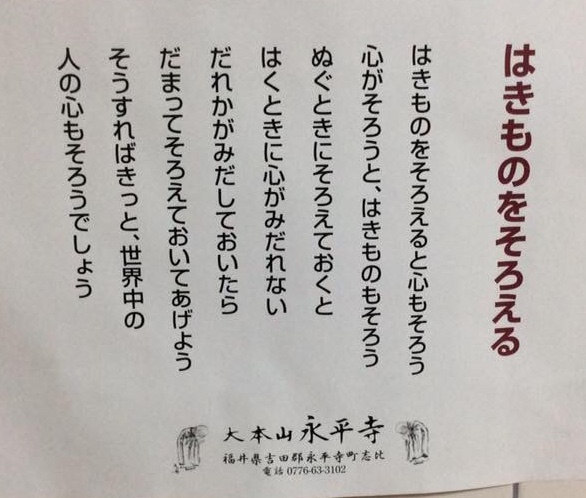 はきものをそろえる
はきものをそろえると心もそろう
心がそろうと、はきものもそろう
ぬぐときにそろえておくと
はくときに心がみだれない
だれかがみだしておいたら
だまってそろえておいてあげよう
そうすればきっと、世界中の
人の心もそろうでしょう
大本山永平寺
福井県吉田郡永平寺町志比
電話 0776-63-3102